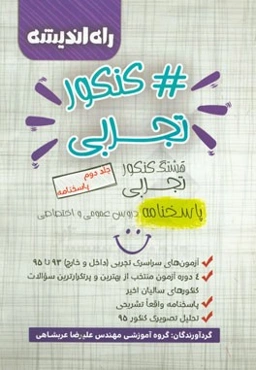 راه اندیشه
# کنکور
تجربی
هشتگ کنکور
تجربی
جلد دوم
پاسخنامه
پاسخنامه دروس عمومی و اختصاصی
آزمون‌های سراسری تجربی (داخل و خارج) ۹۳ تا ۹۵
۴ دوره آزمون منتخب از بهترین و پرتکرارترین سؤالات
کنکورهای سالیان اخیر
پاسخنامه واقعاً تشریحی
تحلیل تصویری کنکور ۹۵
گردآورندگان: گروه آموزشی مهندس علیرضا عربشاهی